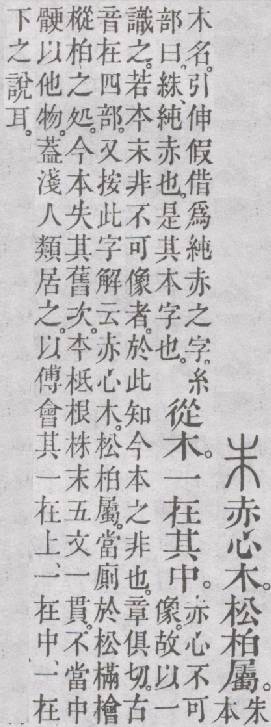 朱赤心木。松柏屬。朱本
木名。引伸假借爲純赤之字。糸
部曰。絑、純赤也。是其本字也。
從木。一在其中。
赤心不可
像。故以一
識之。若本末非不可像者。於此知今本之非也。章俱切。古
音在四部。又按此字解云赤心木。松柏屬。當廁於松樠檜
樅柏之処。今本失其舊次。本柢根株末五文一貫。不當中
骾以他物。蓋淺人類居之。以傅會其一在上、一在中、一在
下之說耳。